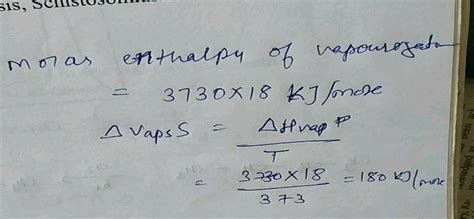 sis, Schistosomia
Molar enthalpy of vapourization
= 3730×18 KJ/mole
ΔvapsS = ΔHvap P
T
= 3730×18 = 180 KJ/mole
373